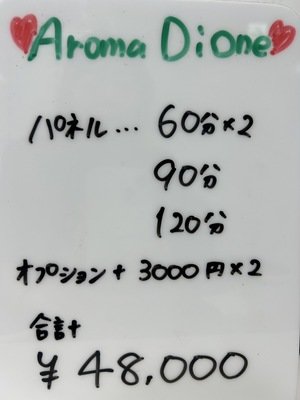 Aroma Dione
パネル… 60分×2
90分
120分
オプション+ 3000円×2
合計
¥48,000